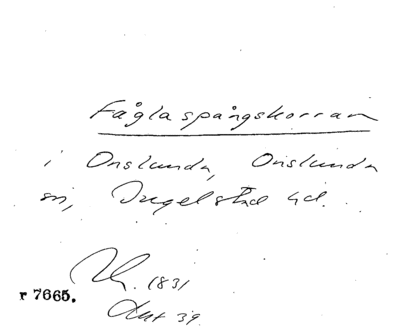 Fåglaspångskorran
i Onslunda, Onslunda
sn, Ingelstad hd.
1831
r 7665.
Akt 39